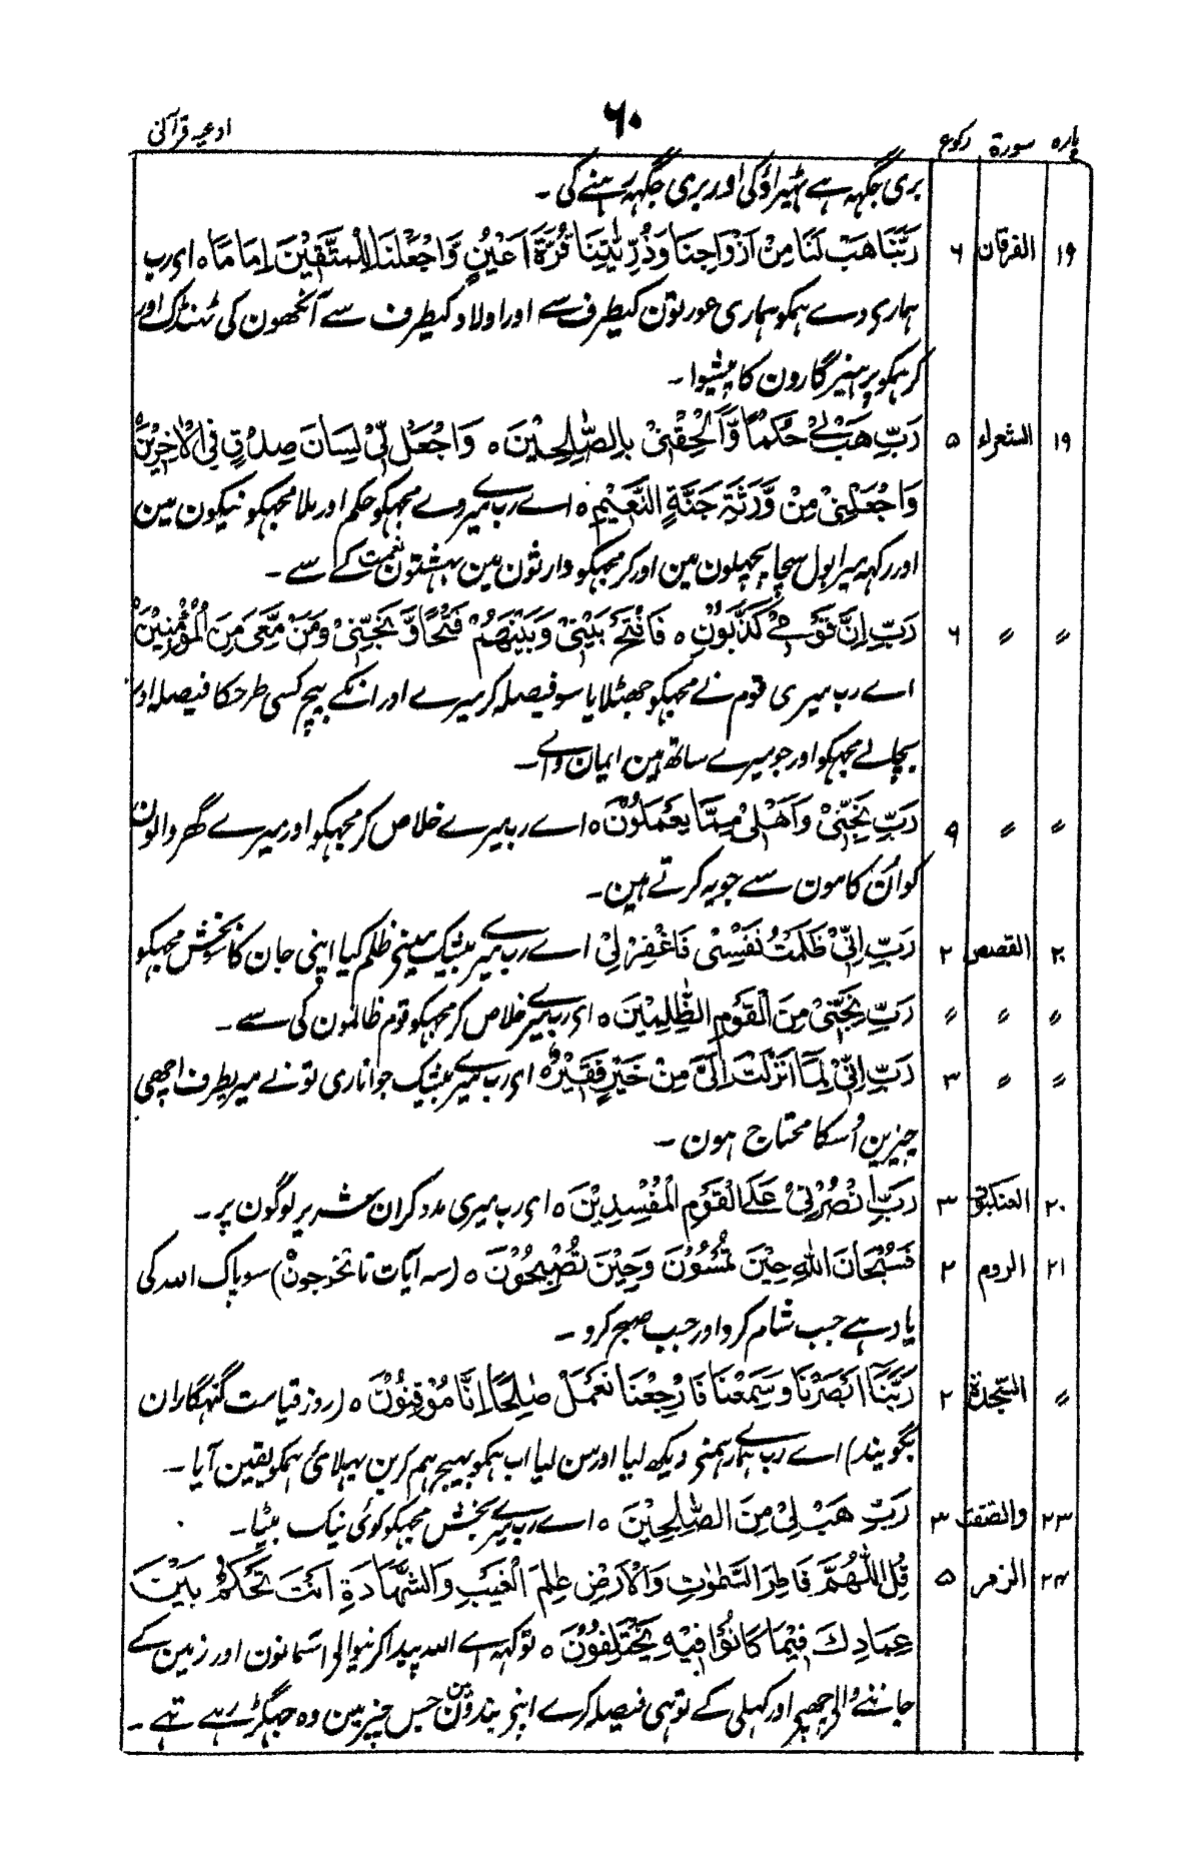 پارہ سورۃ رکوع ۶۰ ادعیہ قرآنی
بری جگہہ ہے ٹہیراؤ کی اور بری جگہہ رہنے کی ۔
۱۹ الفرقان ۶ رَبَّنَا هَبْ لَنَا مِنْ اَزْوَاجِنَا وَذُرِّيّٰتِنَا قُرَّةَ اَعْيُنٍ وَّاجْعَلْنَا لِلْمُتَّقِيْنَ اِمَامًا ہ ای رب
ہماری دے ہمکو ہماری عورتون کیطرف سے اور اولاد کیطرف سے آنکھون کی ٹھنڈک اور
کر ہمکو پرہیزگارون کا پیشوا ۔
۱۹ الشعراء ۵ رَبِّ هَبْ لِيْ حُكْمًا وَّاَلْحِقْنِيْ بِالصّٰلِحِيْنَ ہ وَاجْعَلْ لِّيْ لِسَانَ صِدْقٍ فِي الْاٰخِرِيْنَ ہ
وَاجْعَلْنِيْ مِنْ وَّرَثَةِ جَنَّةِ النَّعِيْمِ ہ اے رب میرے دے مجہکو حکم اور ملا مجہکو نیکون مین
اور رکہہ میرا بول سچا پچہلون مین اور کر مجہکو وارثون مین بہشتون نعمت کے سے ۔
〃 〃 ۶ رَبِّ اِنَّ قَوْمِيْ كَذَّبُوْنِ ہ فَافْتَحْ بَيْنِيْ وَبَيْنَهُمْ فَتْحًا وَّنَجِّنِيْ وَمَنْ مَّعِيَ مِنَ الْمُؤْمِنِيْنَ
اے رب میری قوم نے مجہکو جھٹلایا سو فیصلہ کر میرے اور انکے بیچ کسی طرحکا فیصلہ اور
بچالے مجہکو اور جو میرے ساتھ ہین ایمان والے ۔
〃 〃 ۹ رَبِّ نَجِّنِيْ وَاَهْلِيْ مِمَّا يَعْمَلُوْنَ ہ اے رب میرے خلاص کر مجہکو اور میرے گھر والون
کو اُن کامون سے جو یہ کرتے ہین۔
۲۰ القصص ۲ رَبِّ اِنِّيْ ظَلَمْتُ نَفْسِيْ فَاغْفِرْ لِيْ اے رب میرے بیشک مینے ظلم کیا اپنی جان کا سو بخش مجہکو
〃 〃 〃 رَبِّ نَجِّنِيْ مِنَ الْقَوْمِ الظّٰلِمِيْنَ ہ ای رب میرے خلاص کر مجہکو قوم ظالمون کی سے ۔
〃 〃 ۳ رَبِّ اِنِّيْ لِمَا اَنْزَلْتَ اِلَيَّ مِنْ خَيْرٍ فَقِيْرٌ ہ ای رب میرے بیشک جو اتاری تو نے میریطرف اچھی
چیزین اُسکا محتاج ہون ۔
۲۰ العنکبوت ۳ رَبِّ انْصُرْنِيْ عَلَى الْقَوْمِ الْمُفْسِدِيْنَ ہ ای رب میری مدد کر ان شریر لوگون پر ۔
۲۱ الروم ۲ فَسُبْحَانَ اللّٰهِ حِيْنَ تُمْسُوْنَ وَحِيْنَ تُصْبِحُوْنَ ہ (سہ آیات تا تخرجون) سو پاک اللہ کی
یاد ہے جب شام کرو اور جب صبح کرو ۔
〃 السّجدۃ ۲ رَبَّنَا اَبْصَرْنَا وَسَمِعْنَا فَارْجِعْنَا نَعْمَلْ صٰلِحًا اِنَّا مُوْقِنُوْنَ ہ (روز قیامت گنہگاران
بگویند) اے رب ہمارے ہمنے دیکھ لیا اور سن لیا اب ہمکو بہیج ہم کرین بہلائی ہمکو یقین آیا ۔
۲۳ والصّفّت ۳ رَبِّ هَبْ لِيْ مِنَ الصّٰلِحِيْنَ ہ اے رب میرے بخش مجہکو کوئی نیک بیٹا ۔
۲۴ الزمر ۵ قُلِ اللّٰهُمَّ فَاطِرَ السَّمٰوٰتِ وَالْاَرْضِ عٰلِمَ الْغَيْبِ وَالشَّهَادَةِ اَنْتَ تَحْكُمُ بَيْنَ
عِبَادِكَ فِيْمَا كَانُوْا فِيْهِ يَخْتَلِفُوْنَ ہ تو کہہ اے اللہ پیدا کرنیوالے آسمانون اور زمین کے
جاننے والے چھپے اور کہلی کے تو ہی فیصلہ کرے اپنے بندون مین جس چیز مین وہ جہگڑ رہے تہے ۔